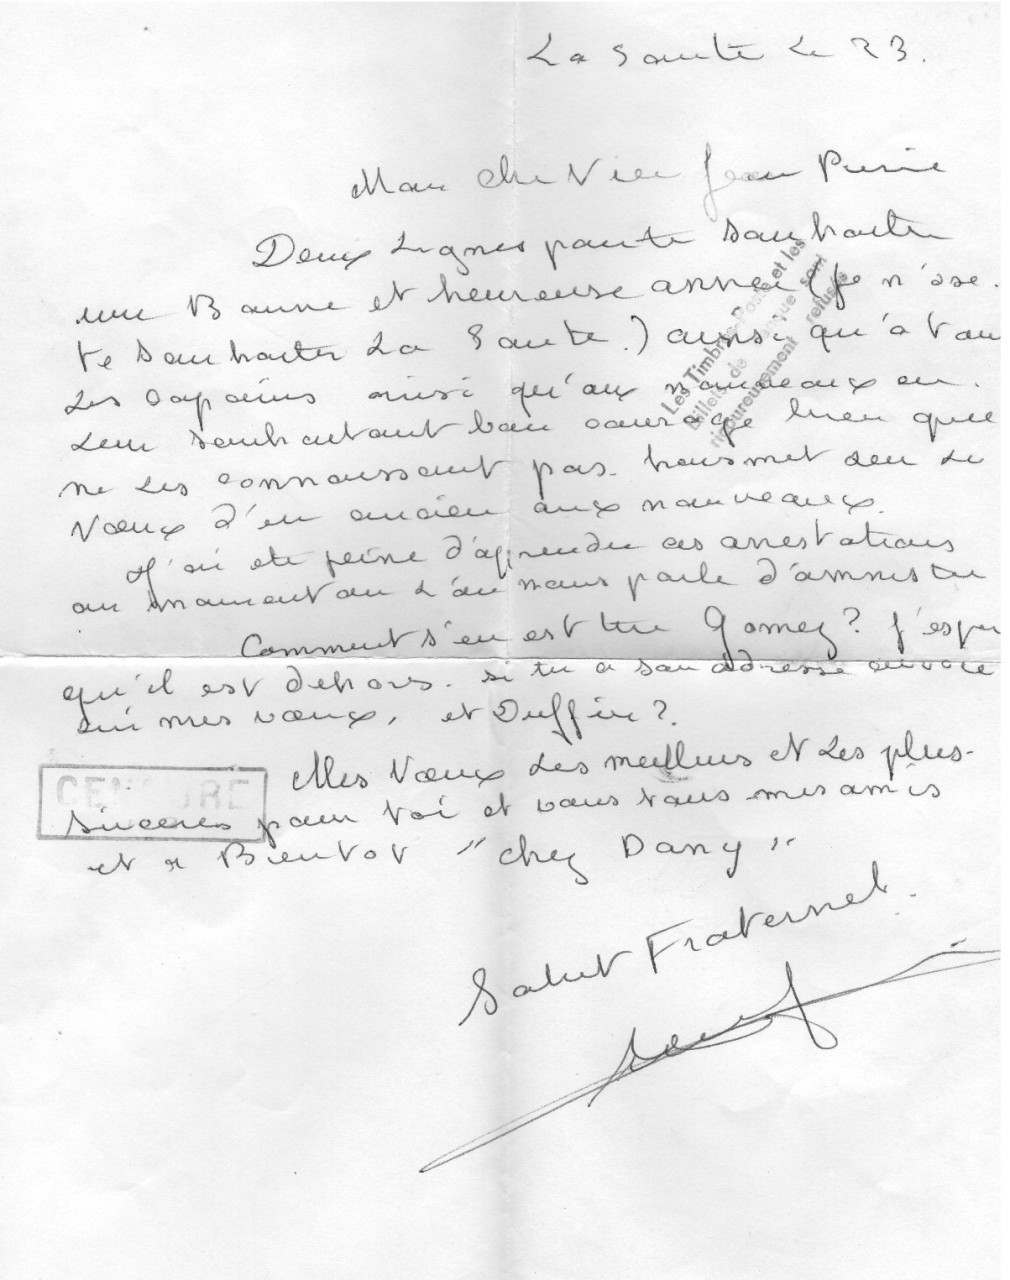 La Sante Le 23.
Mon cher Vieu Jean Pierre
Deux Lignes pour te souhaiter
une Bonne et heureuse année (je n'ose.
te souhaiter La Sante.) ainsi qu'a tou
Les copains ainsi qu'aux nouveaux en.
Leur souhaitant bon courage bien que
ne Les connaissant pas. transmet Leu Le
Vœux d'un ancien aux nouveaux.
J'ai ete peine d'apprendre ces arrestations
au moment ou L'on nous parle d'amnistie
Comment s'en est tire Gomez? J'espere
qu'il est dehors. si tu a son adresse envoie
Lui mes vœux, et Duffin?
Mes Vœux Les meilleurs et Les plus-
sinceres pour toi et vous tous mes amis
et a Bientot "chez Dany"
Salut Fraternel.
Les Timbres-Poste et les
Billets de Banque sont
rigoureusement refusés
CENSURE